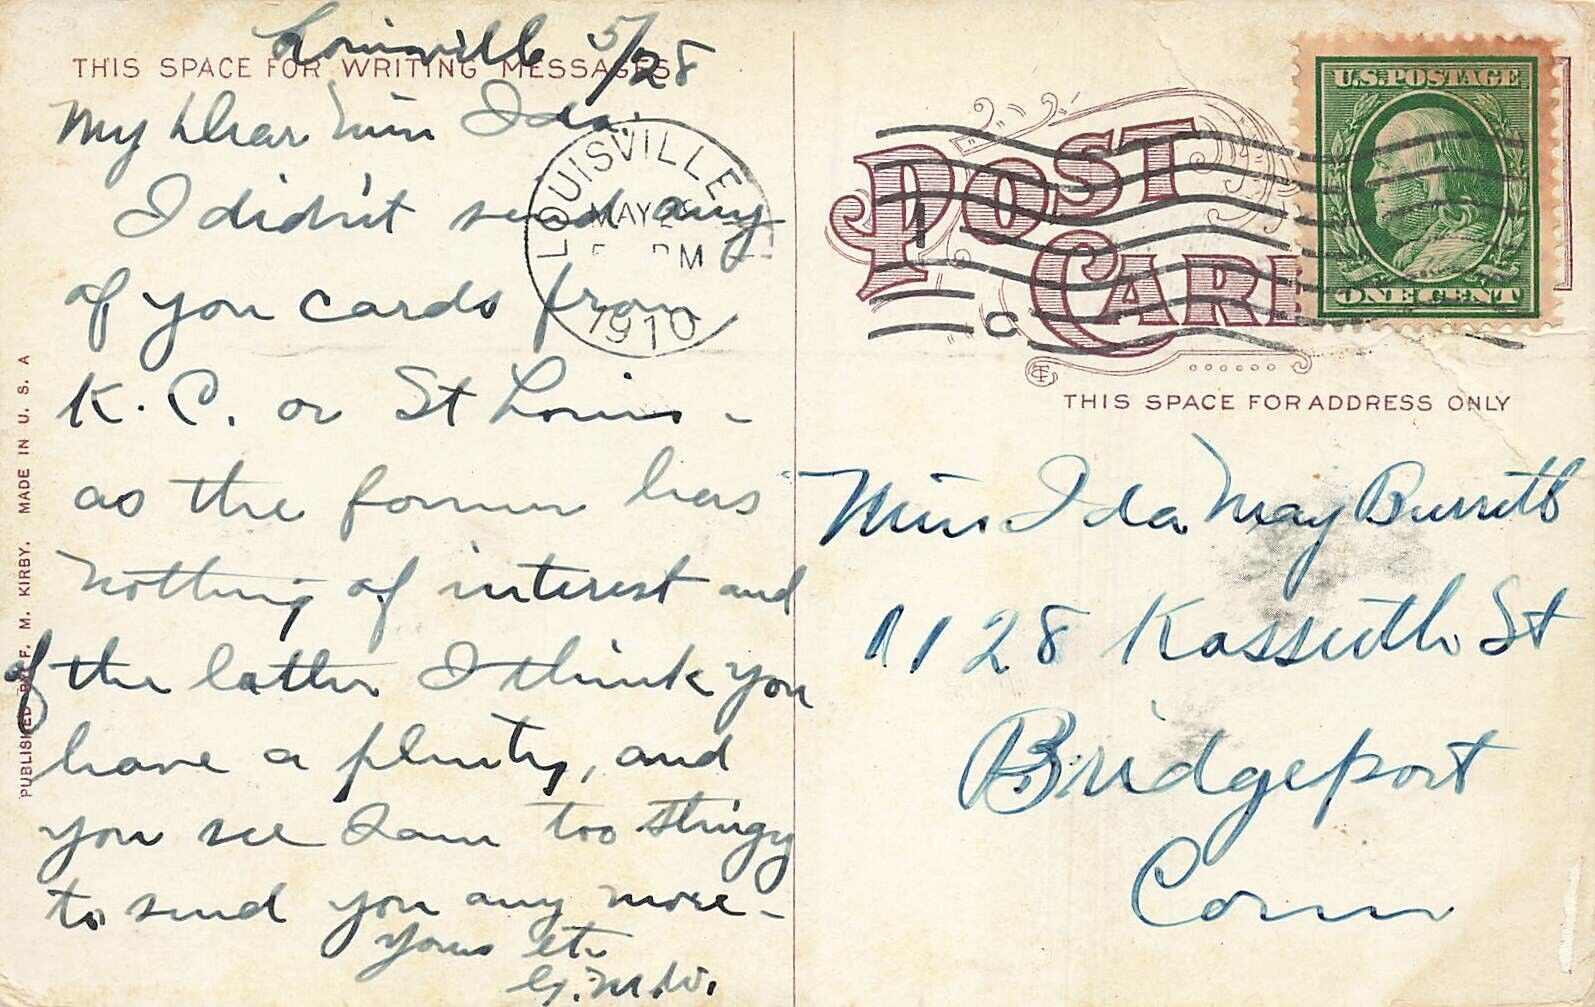 Louisville 5/28
THIS SPACE FOR WRITING MESSAGES
My Dear Miss Ida.
I didn't send any
of you cards from
K. C. or St Louis -
as the former has
nothing of interest and
of the latter I think you
have a plenty, and
you see I am too stingy
to send you any more -
Yours etc
G.M.W.
PUBLISHED BY F. M. KIRBY. MADE IN U. S. A
LOUISVILLE
MAY
PM
1910
POST
CARD
U.S.POSTAGE
ONE CENT
THIS SPACE FOR ADDRESS ONLY
Miss Ida May Burritt
1128 Kossuth St
Bridgeport
Conn